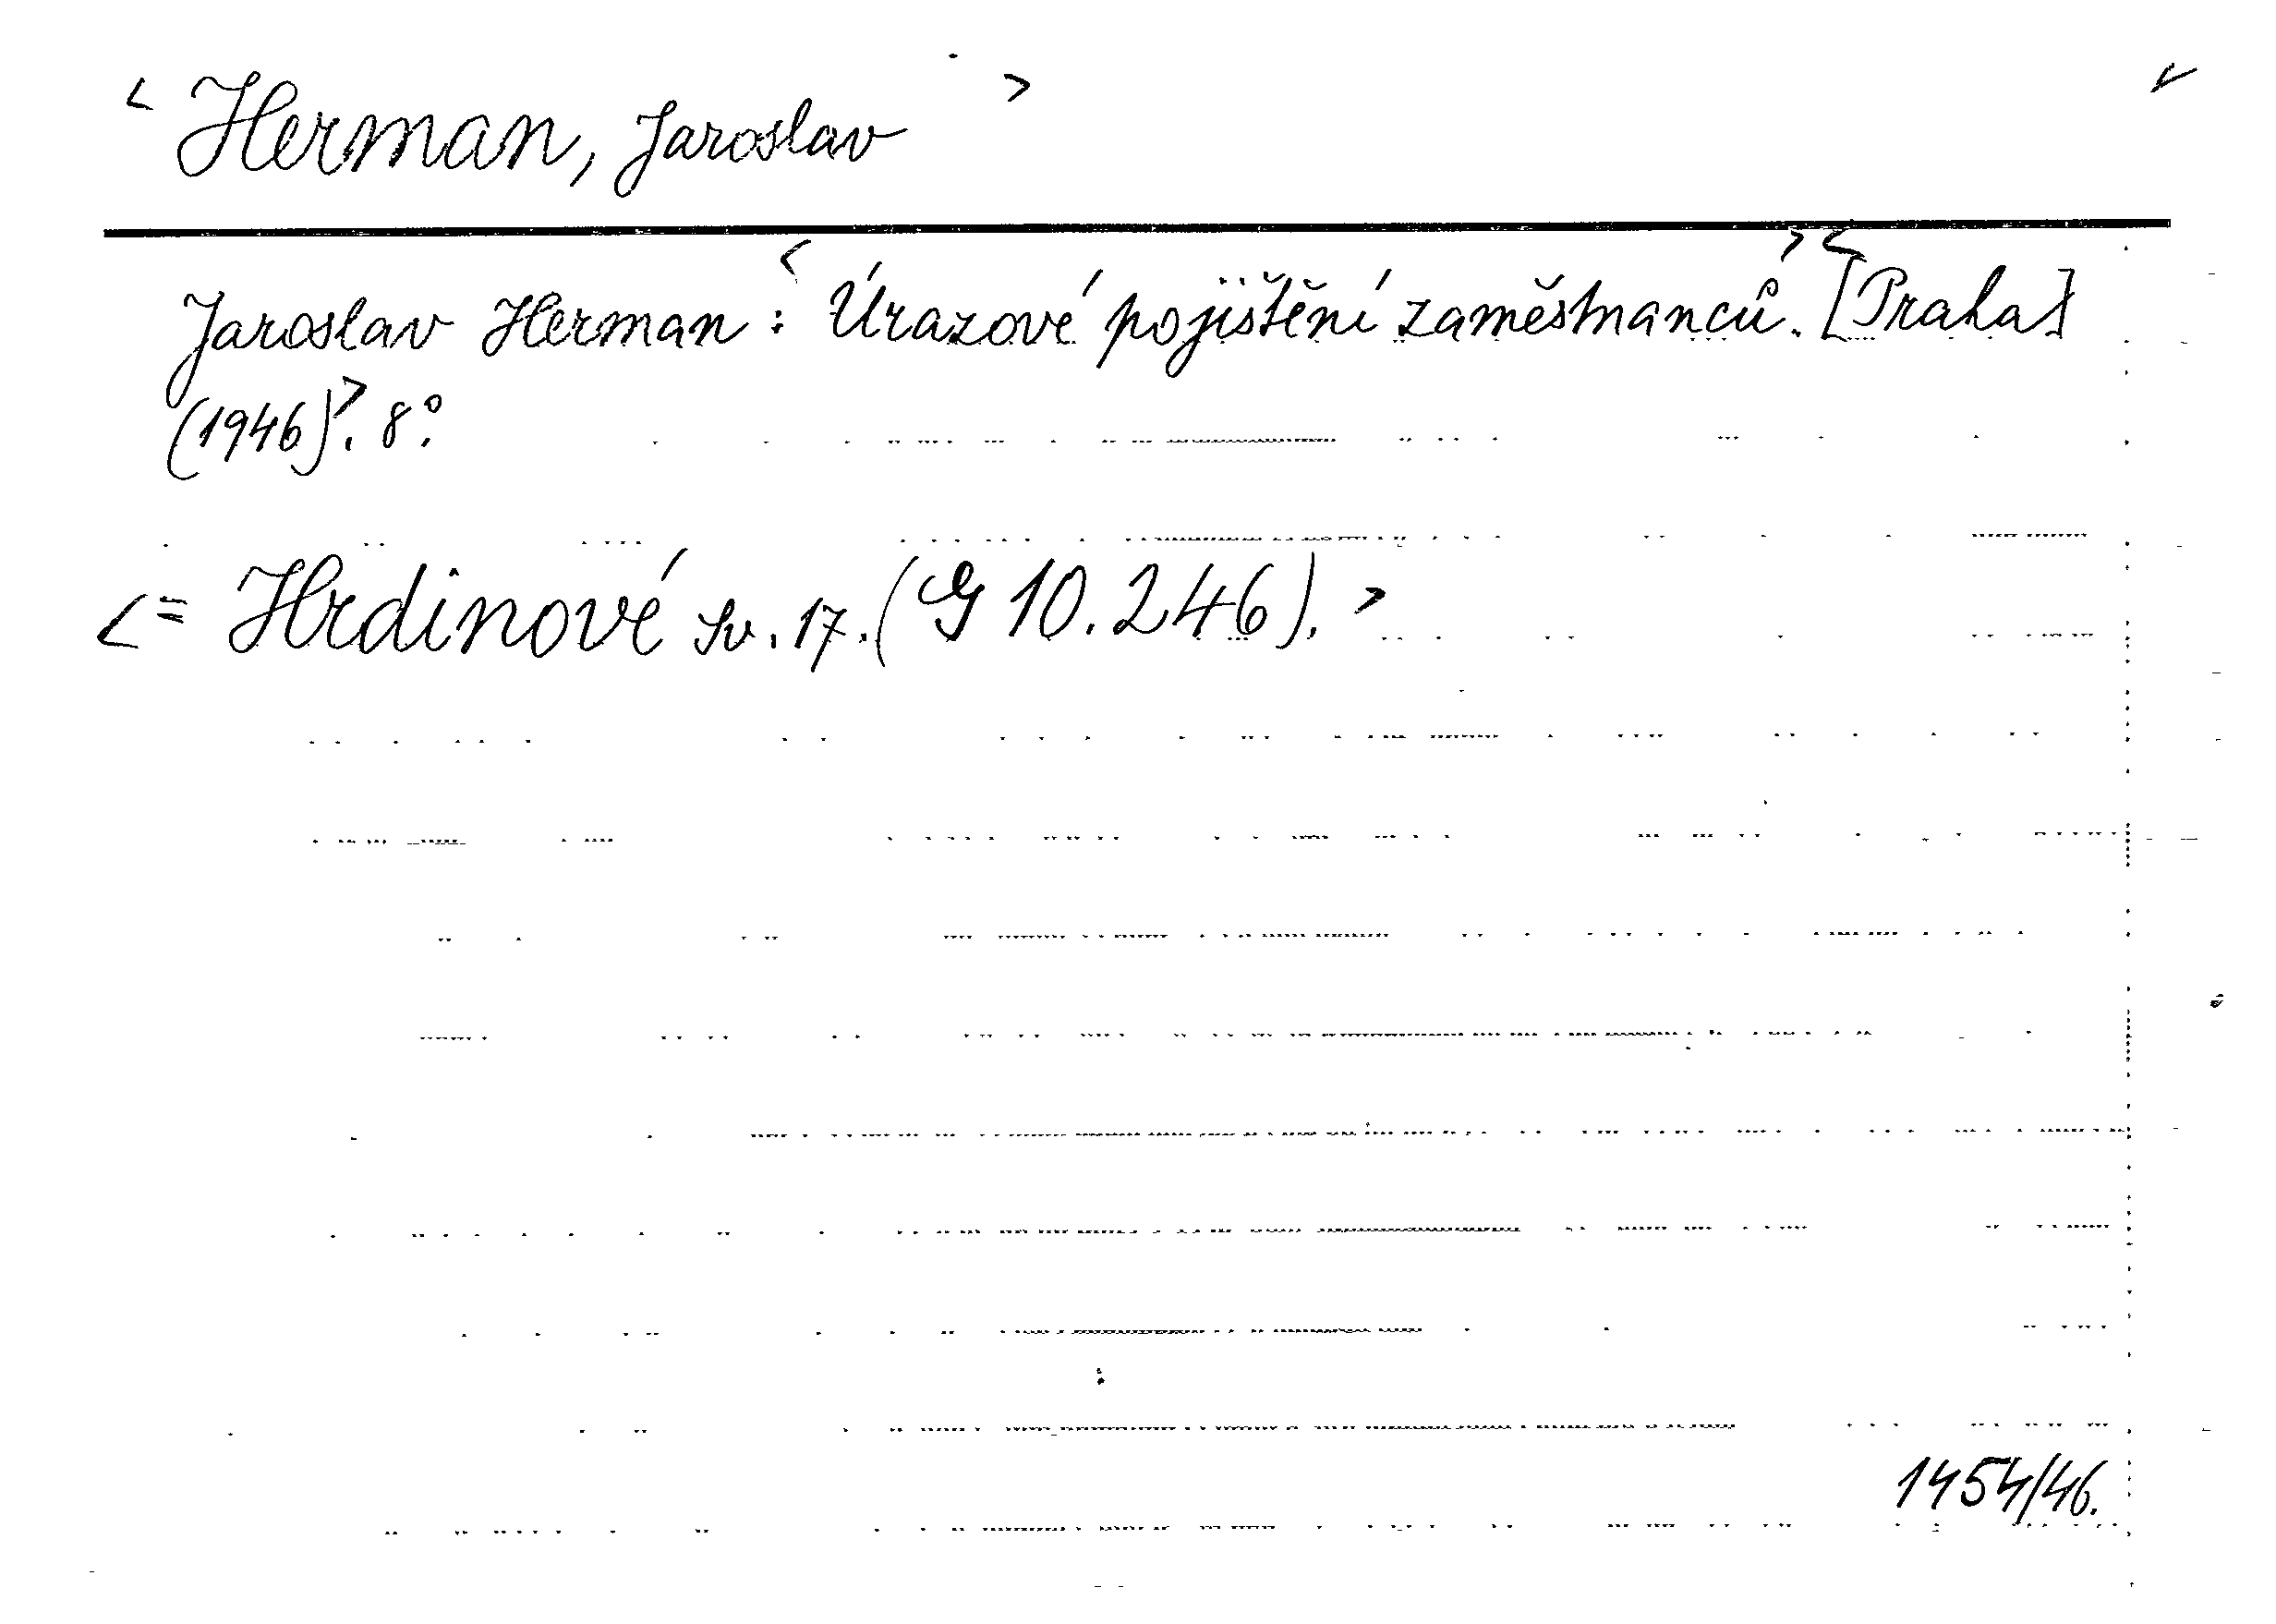 < Herman, Jaroslav >
Jaroslav Herman: < Úrazové pojištění zaměstnanců. > < [Praha]
(1946) >. 8°.
< = Hrdinové sv. 17. (G 10.246). >
1454/46.